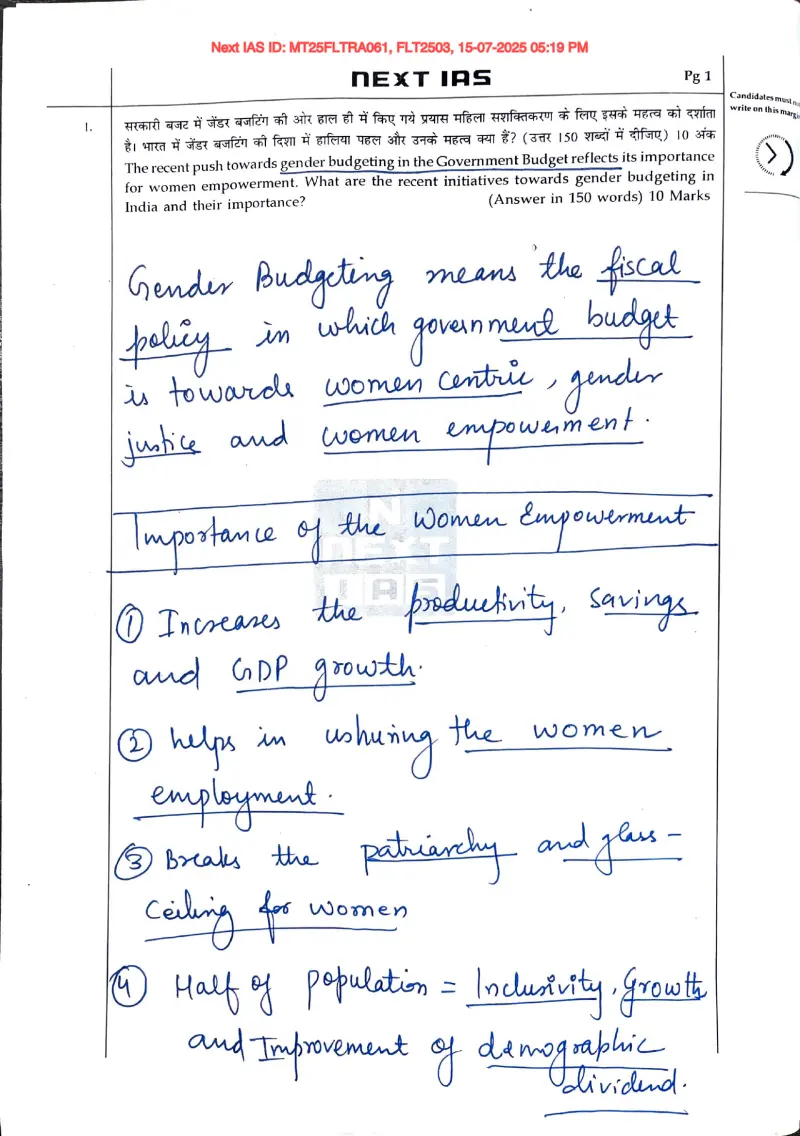 Next IAS ID: MT25FLTRA061, FLT2503, 15-07-2025 05:19 PM
NEXT IAS
Pg 1
Candidates must
write on this margi
1.
सरकारी बजट में जेंडर बजटिंग की ओर हाल ही में किए गये प्रयास महिला सशक्तिकरण के लिए इसके महत्व को दर्शाता
है। भारत में जेंडर बजटिंग की दिशा में हालिया पहल और उनके महत्व क्या हैं? (उत्तर 150 शब्दों में दीजिए) 10 अंक
The recent push towards gender budgeting in the Government Budget reflects its importance
for women empowerment. What are the recent initiatives towards gender budgeting in
India and their importance? (Answer in 150 words) 10 Marks
Gender Budgeting means the fiscal
policy in which government budget
is towards women centric, gender
justice and women empowerment.
NEXT IAS
Importance of the Women Empowerment
① Increases the productivity, savings
and GDP growth.
② helps in ushuring the women
employment.
③ Breaks the patriarchy and glass-
ceiling for women
④ Half of population = Inclusivity, Growth
and Improvement of demographic
dividend.